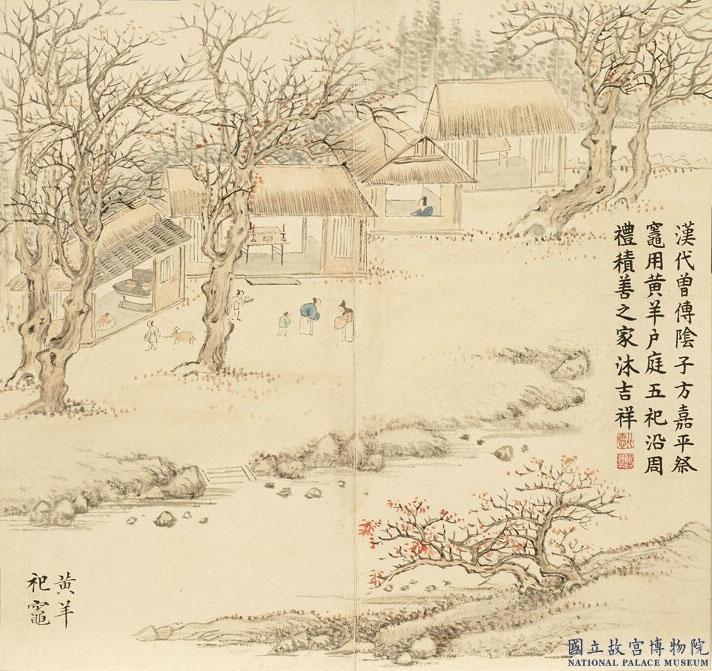 漢代曾傳陰子方嘉平祭
竈用黄羊户庭五祀沿周
禮積善之家沐吉祥
黄羊
祀竈
國立故宮博物院
NATIONAL PALACE MUSEUM